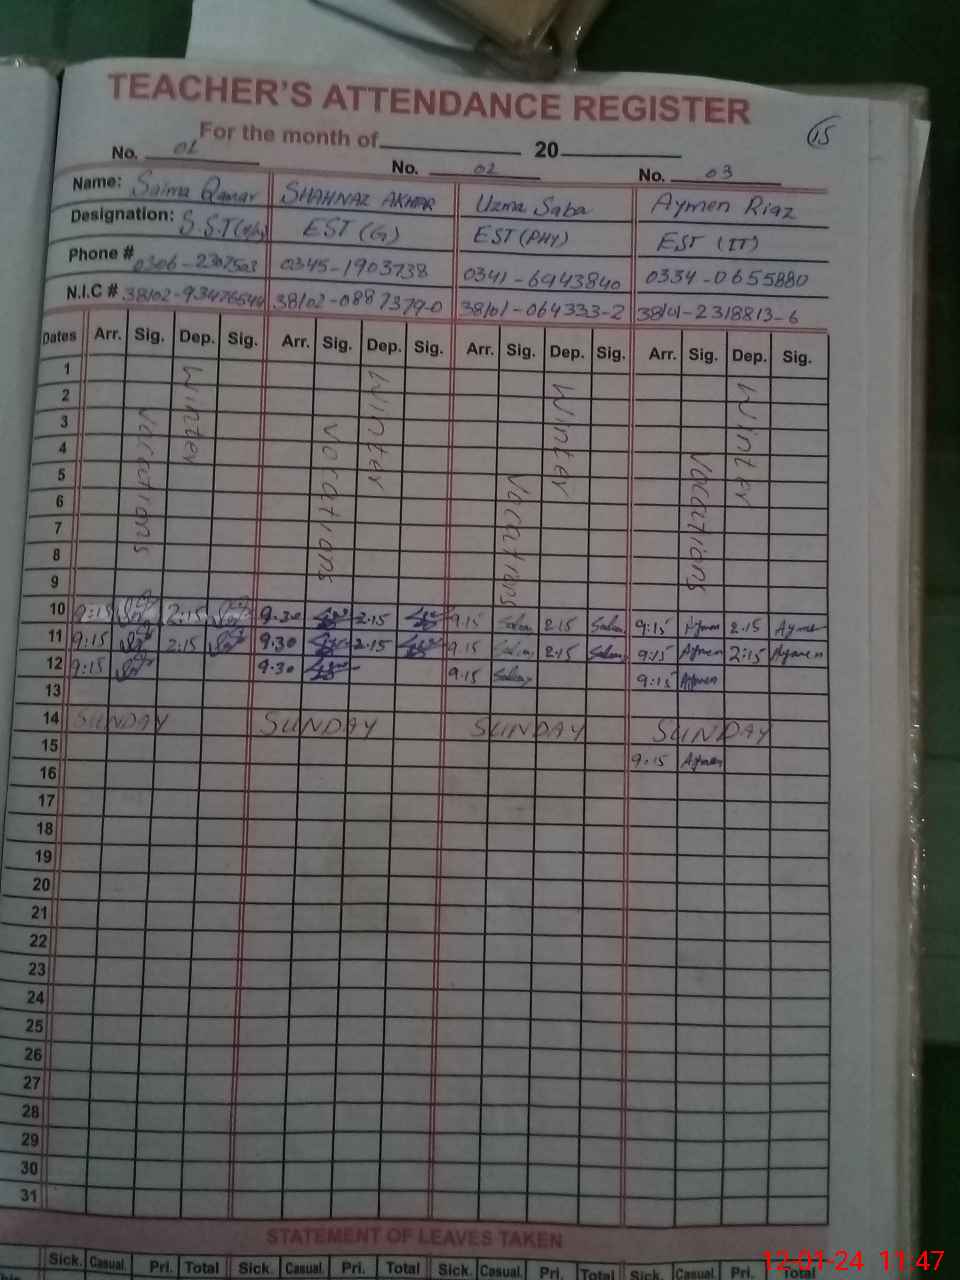 TEACHER'S ATTENDANCE REGISTER
15
For the month of 20
No. 01 No. 02 No. 03
Name: Saima Qamar SHAHNAZ AKHTAR Uzma Saba Aymen Riaz
Designation: S.S.T EST (G) EST (PHY) EST (IT)
Phone # 0306-2307503 0345-1903738 0341-6943840 0334-0655880
N.I.C # 38102-0887379-0 38101-064333-2 38101-2318813-6
Dates Arr. Sig. Dep. Sig. Arr. Sig. Dep. Sig. Arr. Sig. Dep. Sig. Arr. Sig. Dep. Sig.
Winter Winter Winter Winter
Vacations Vocations Vocations Vocations
1
2
3
4
5
6
7
8
9
10 9:15 2:15 9.30 2.15 9.15 2.15 9:15 Aymen 2.15 Aymen
11 9:15 2:15 9.30 2.15 9.15 2.15 9:15 Aymen 2:15 Aymen
12 9:15 9.30 9.15 9:15 Aymen
13
14 SUNDAY SUNDAY SUNDAY SUNDAY
15 9:15 Aymen
16
17
18
19
20
21
22
23
24
25
26
27
28
29
30
31
STATEMENT OF LEAVES TAKEN
Sick. Casual. Pri. Total Sick. Casual. Pri. Total Sick. Casual. Pri. Total Sick. Casual. Pri. Total
12-01-24 11:47